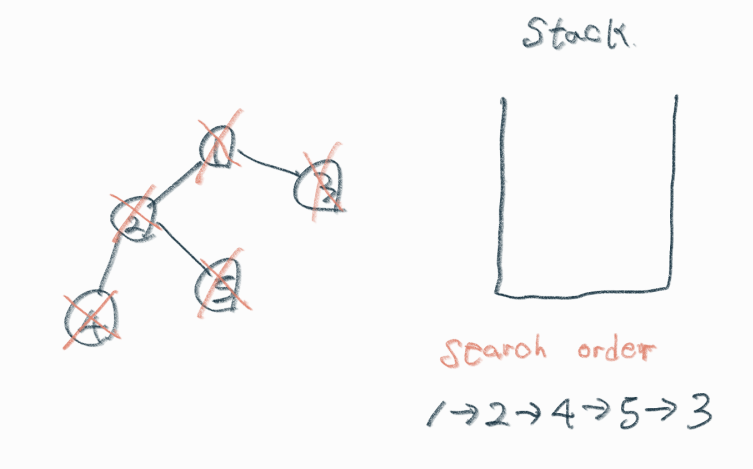 Stack.
1
3
2
5
4
Search order
1→2→4→5→3